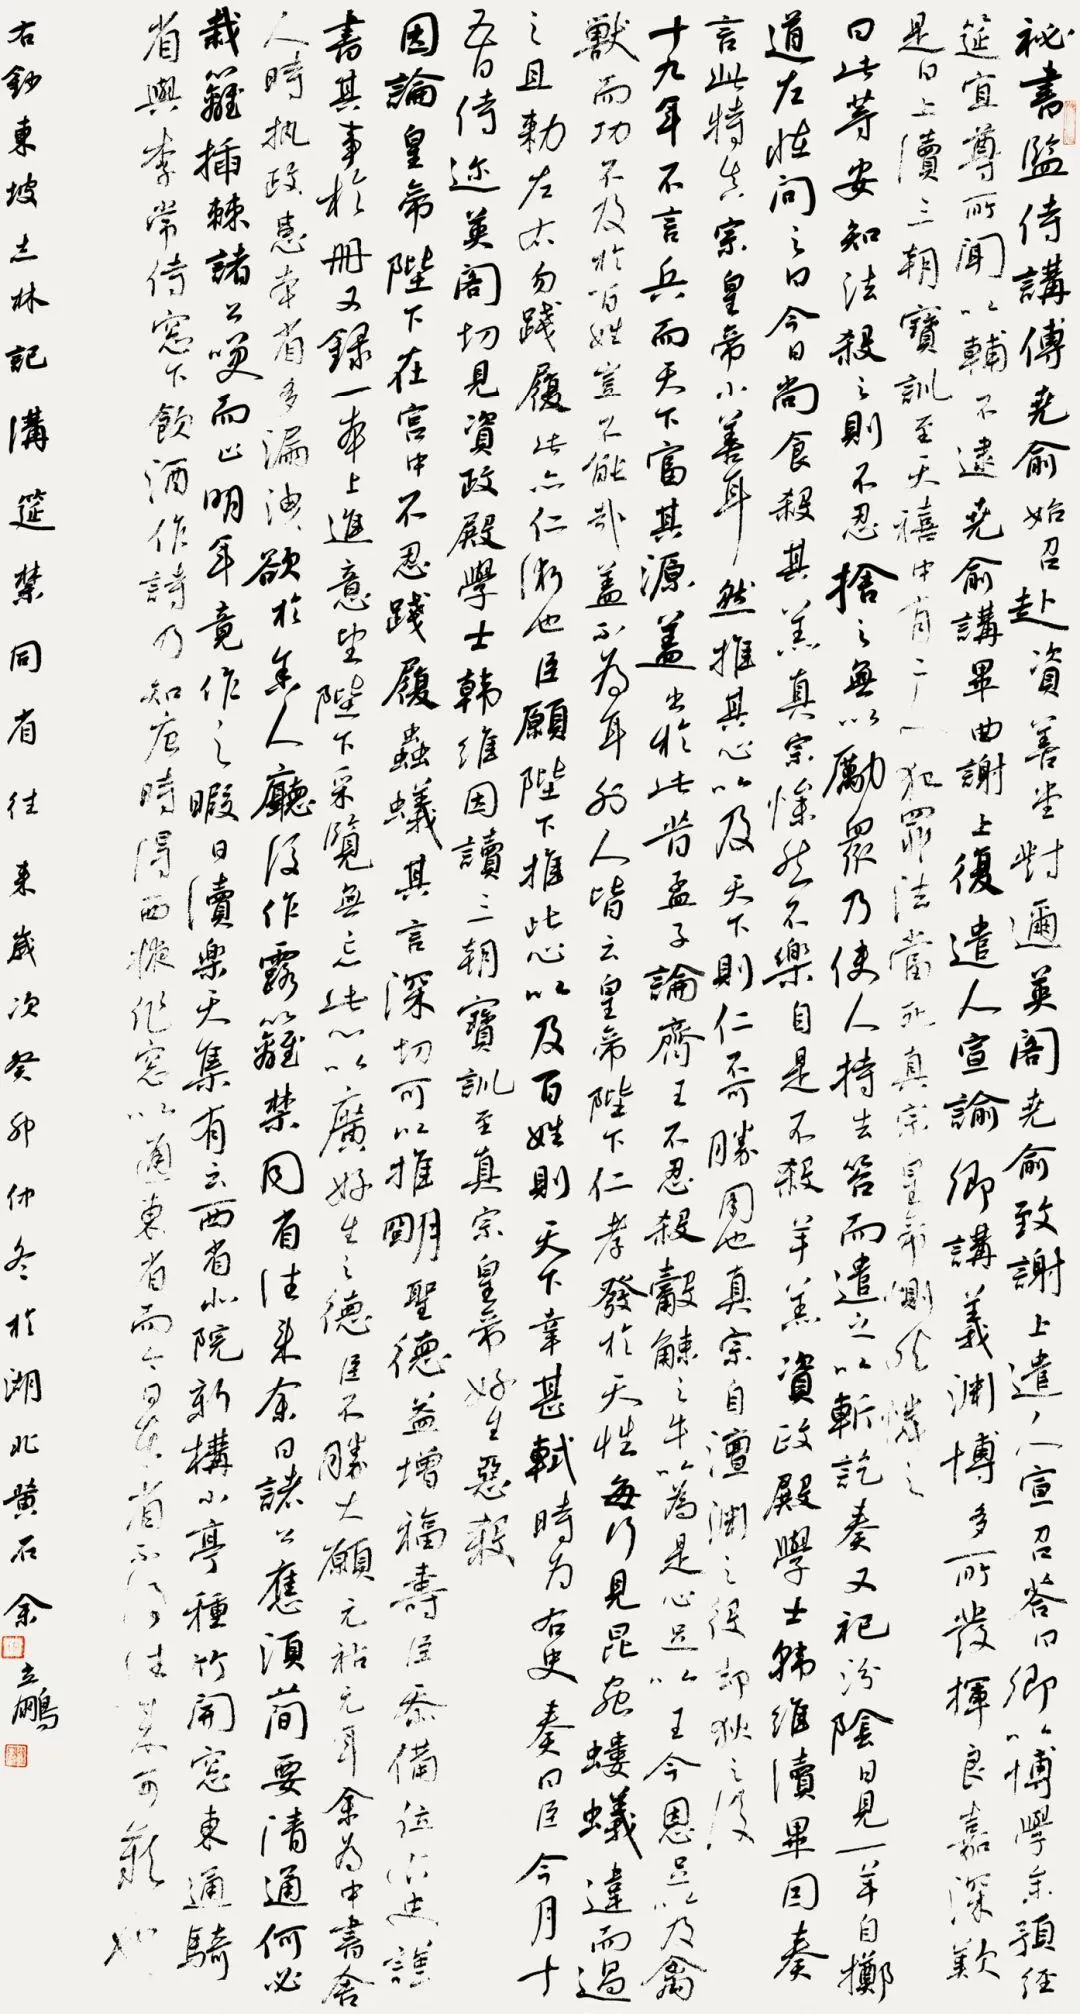 祕書監侍講傅堯俞始召赴資善堂對邇英閣堯俞致謝上遣人宣召答曰卿以博學參預經
筵宜尊所聞以輔不逮堯俞講畢曲謝上復遣人宣諭卿講義淵博多所發揮良嘉深歎
是日上讀三朝寶訓至天禧中有二人犯罪法當死真宗皇帝惻然憐之
曰此等安知法殺之則不忍捨之無以勵眾乃使人持去笞而遣之以斬訖奏又祀汾陰日見一羊自擲
道左怪問之曰今日尚食殺其羔真宗慘然不樂自是不殺羊羔資政殿學士韓維讀畢因奏
言此特真宗皇帝小善耳然推其心以及天下則仁不可勝用也真宗自澶淵之役却狄之後
十九年不言兵而天下富其源蓋出於此昔孟子論齊王不忍殺觳觫之牛以為是心足以王今恩足以及禽
獸而功不及於百姓豈不能哉蓋不為耳外人皆云皇帝陛下仁孝發於天性每行見昆蟲螻蟻違而過
之且勅左右勿踐履此亦仁術也臣願陛下推此心以及百姓則天下幸甚軾時為右史奏曰臣今月十
五日侍邇英閣切見資政殿學士韓維因讀三朝寶訓至真宗皇帝好生惡殺
因論皇帝陛下在宮中不忍踐履蟲蟻其言深切可以推明聖德益增福壽臣忝備位右史謹
書其事於冊又錄一本上進意望陛下采覽無忘此心以廣好生之德臣不勝大願元祐元年余為中書舍
人時執政患本省多漏洩欲於舍人廳後作露籬禁同省往來余曰諸公應須簡要清通何必
栽籬插棘諸公笑而止明年竟作之暇日讀樂天集有云西省北院新構小亭種竹開窓東通騎
省與李常侍窓下飲酒作詩乃知唐時得西掖作窓以通東省而今日本省不得往來可歎也
右鈔東坡志林記講筵禁同省往來歲次癸卯仲冬於湖北黃石余立鵬